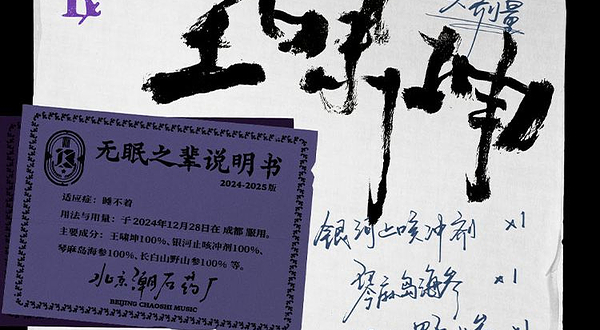 大剂量
王啸坤
无眠之辈说明书
2024-2025版
适应症：睡不着
用法与用量：于2024年12月28日在 成都 服用。
主要成分：王啸坤100%、银河止咳冲剂100%、
琴麻岛海参100%、长白山野山参100% 等。
北京潮石药厂
BEIJING CHAOSHI MUSIC
银河止咳冲剂 x1
琴麻岛海参 x1